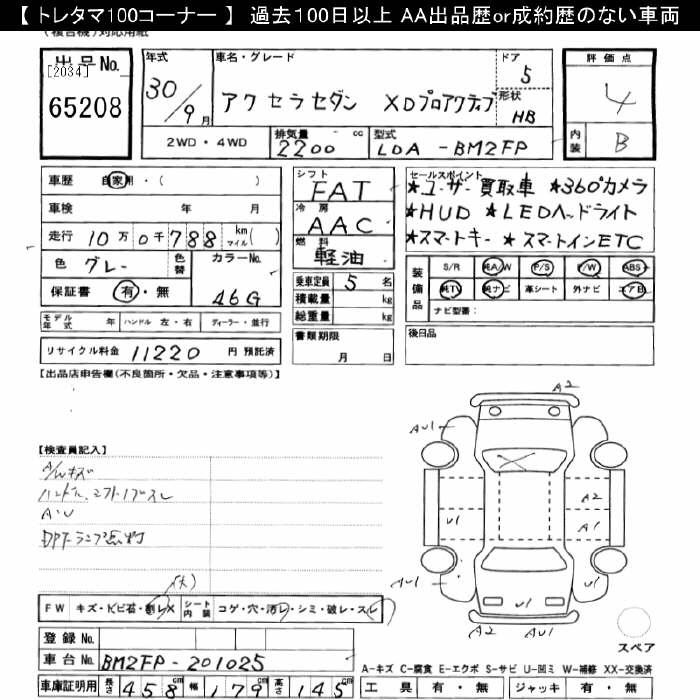 【 トレタマ100コーナー 】 過去100日以上 AA出品歴or成約歴のない車両
(複合機)対応用紙
出品No.
[2034]
65208
年式
30/9月
車名・グレード
アクセラセダン XDプロアクティブ
ドア
5
形状
HB
評価点
4
内装
B
2WD・4WD
排気量 cc
2200
型式
LDA-BM2FP
車歴 自家用・( )
車検 年 月
走行 10万0千788 km マイル( )
色 グレー
色替
カラーNo.
46G
保証書 有・無
シフト
FAT
冷房
AAC
燃料
軽油
乗車定員 5 名
積載量 kg
総重量 kg
書類期限
月 日
セールスポイント
★ユーザー買取車 ★360°カメラ
★HUD ★LEDヘッドライト
★スマートキー ★スマートインETC
装備品
S/R 純A/W P/S P/W ABS
純TV 純ナビ 革シート 外ナビ エアB
ナビ型番:
後日品
モデル年式 年 ハンドル 左・右 ディーラー・並行
リサイクル料金 11220 円 預託済
【出品店申告欄(不良箇所・欠品・注意事項等)】
【検査員記入】
A/Wキズ
ハンドル、シフトノブスレ
A・U
DPFランプ点灯
(大)
FW キズ・トビ石・割レX
シート内装 コゲ・穴・汚レ・シミ・破レ・スレ
登録No.
車台No. BM2FP-201025
車庫証明用 長さ 458cm 幅 179cm 高さ 145cm
A2
AU1
X
A2
U1
A1
AU1
U1
U1
A2
AU1
スペア
A-キズ C-腐食 E-エクボ S-サビ U-凹ミ W-補修 XX-交換済
工具 有・無 ジャッキ 有・無